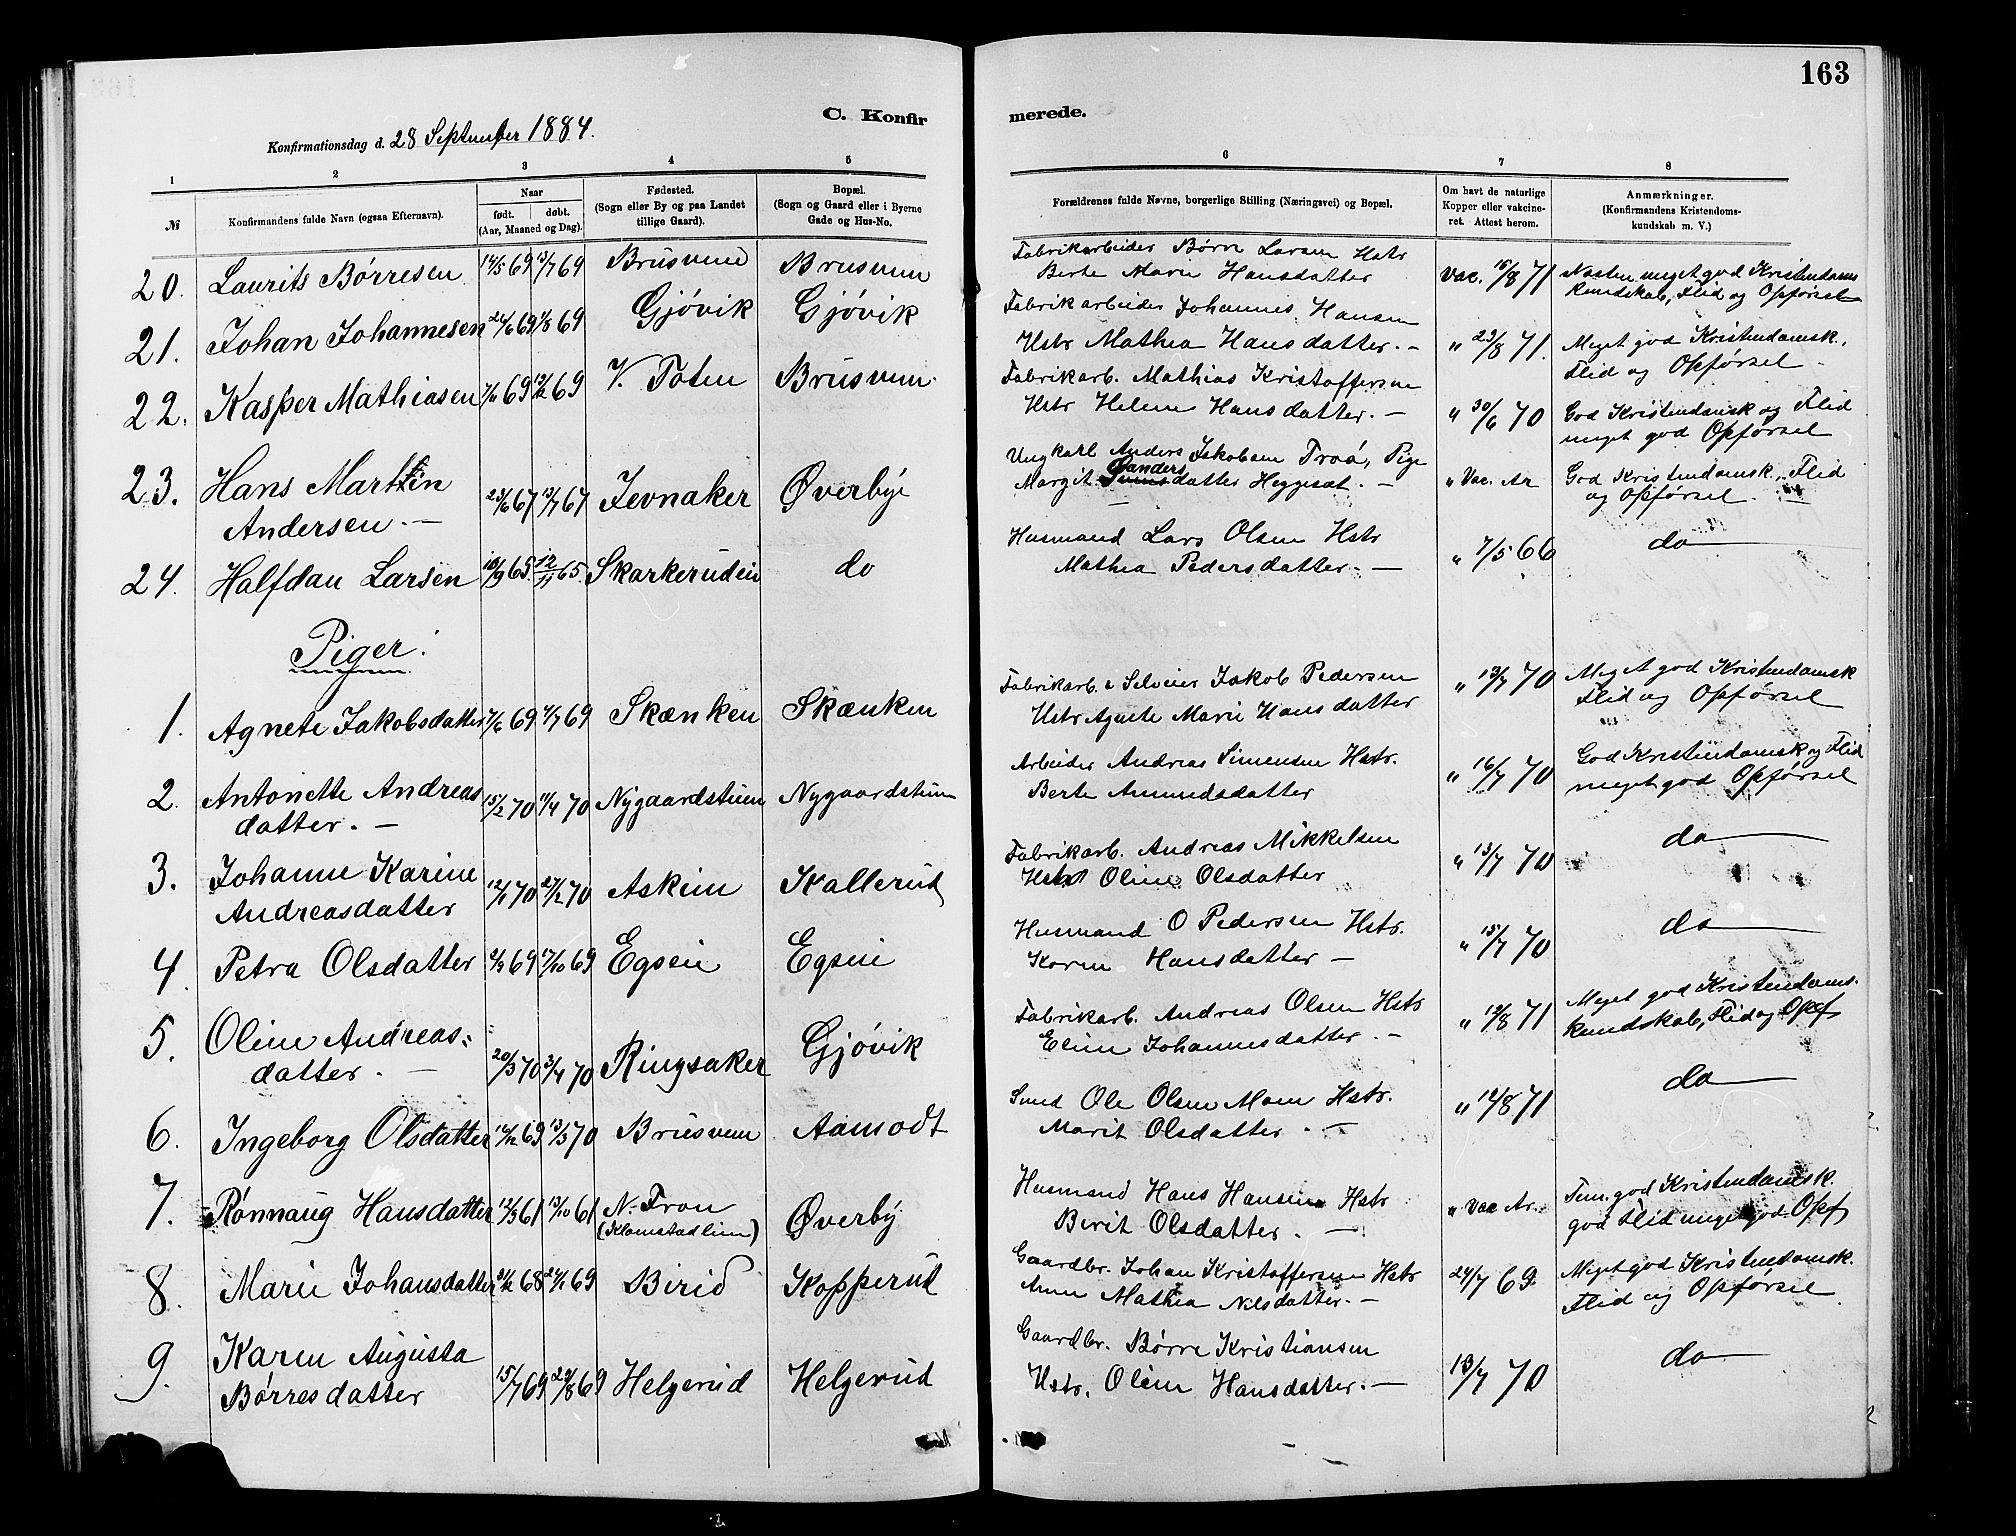 163
C. Konfirmerede.
Konfirmationsdag d. 28 September 1884.
1 2 3 4 5 6 7 8
№
Konfirmandens fulde Navn (ogsaa Efternavn).
Naar
født. døbt.
(Aar, Maaned og Dag).
Fødested.
(Sogn eller By og paa Landet
tillige Gaard).
Bopæl.
(Sogn og Gaard eller i Byerne
Gade og Hus-No.
Forældrenes fulde Navne, borgerlige Stilling (Næringsvei) og Bopæl.
Om havt de naturlige
Kopper eller vakcine-
ret. Attest herom.
Anmærkninger.
(Konfirmandens Kristendoms-
kundskab m. V.)
20. Laurits Børresen 14/5 69 13/7 69 Brusveen Brusveen
Fabrikarbeider Børre Larsen Hstr
Berte Marie Hansdatter
Vac. 15/8 71
Næsten meget god Kristendoms
kundskab, Flid og Opførsel
21. Johan Johannesen 24/6 69 1/8 69 Gjövik Gjövik
Fabrikarbeider Johannes Hansen
Hstr Mathea Hansdatter. –
" 23/8 71.
Meget god Kristendomsk.,
Flid og Opførsel
22. Kasper Mathiasen 69 69 V. Toten Brusveen.
Fabrikarb. Mathias Kristoffersen
Hstr Helene Hansdatter. –
" 30/6 70
God Kristendomsk og Flid
meget god Opførsel
23. Hans Martin
Andersen. – 23/6 67 13/7 67 Jevnaker Øverbye
Ungkarl Anders Jakobsen Troö, Pige
Margit datter Heggesat. –
" Vac. Ar
God Kristendomsk., Flid
og Opførsel. –
24. Halfdan Larsen 10/9 65. 12/11 65. Skarkerudein do
Husmand Lars Olsen Hstr
Mathea Pedersdatter. –
" 7/5 66
do
Piger.
1. Agnete Jakobsdatter 7/6 69 4/7 69 Skænken Skænken
Fabrikarb. & Selveier Jakob Pedersen
Hstr Agnete Marie Hansdatter
" 13/7 70
Meget god Kristendomsk
Flid og Opførsel
2. Antonette Andreas
datter. – 15/2 70 11/4 70 Nygaardstuen Nygaardstuen
Arbeider Andreas Simensen Hstr.
Berte Amundsdatter
" 16/7 70
God Kristendomsk og Flid
meget god Opførsel
3. Johanne Karine
Andreasdatter 12/1 70 27/2 70 Askim Kallerud
Fabrikarb. Andreas Mikkelsen
Hstr Oline Olsdatter
" 13/7 70
do
4. Petra Olsdatter 69 17/10 69 Egseie Egseie
Husmand O Pedersen Hstr.
Karen Hansdatter –
" 15/7 70
do
5. Oline Andreas-
datter. – 20/3 70 3/4 70 Ringsaker Gjövik
Fabrikarb. Andreas Olsen Hstr
Eline Johannesdatter. –
" 12/8 71
Meget god Kristendoms-
kundskab, Flid og Opf
6. Ingeborg Olsdatter 12/12 69 13/3 70 Brusveen Aamodt
Smed Ole Olsen Moen Hstr.
Marit Olsdatter. –
" 12/8 71
do
7. Rønnaug Hansdatter 12/3 61 13/10 61 N. Fron
(Klomstadlien) Øverby
Husmand Hans Hansen Hstr
Berit Olsdatter. –
" Vac Ar.
Tem. god Kristendomsk.
god Flid meget god Opf
8. Marie Johansdatter 68 69 Birid Kopperud
Gaardbr. Johan Kristoffersen Hstr
Anne Mathea Nilsdatter. –
24/7 69.
Meget god Kristendomsk.
Flid og Opførsel
9. Karen Augusta
Børresdatter 15/7 69 29/8 69 Helgerud Helgerud
Gaardbr. Børre Kristiansen
Hstr. Oline Hansdatter. –
13/7 70
do